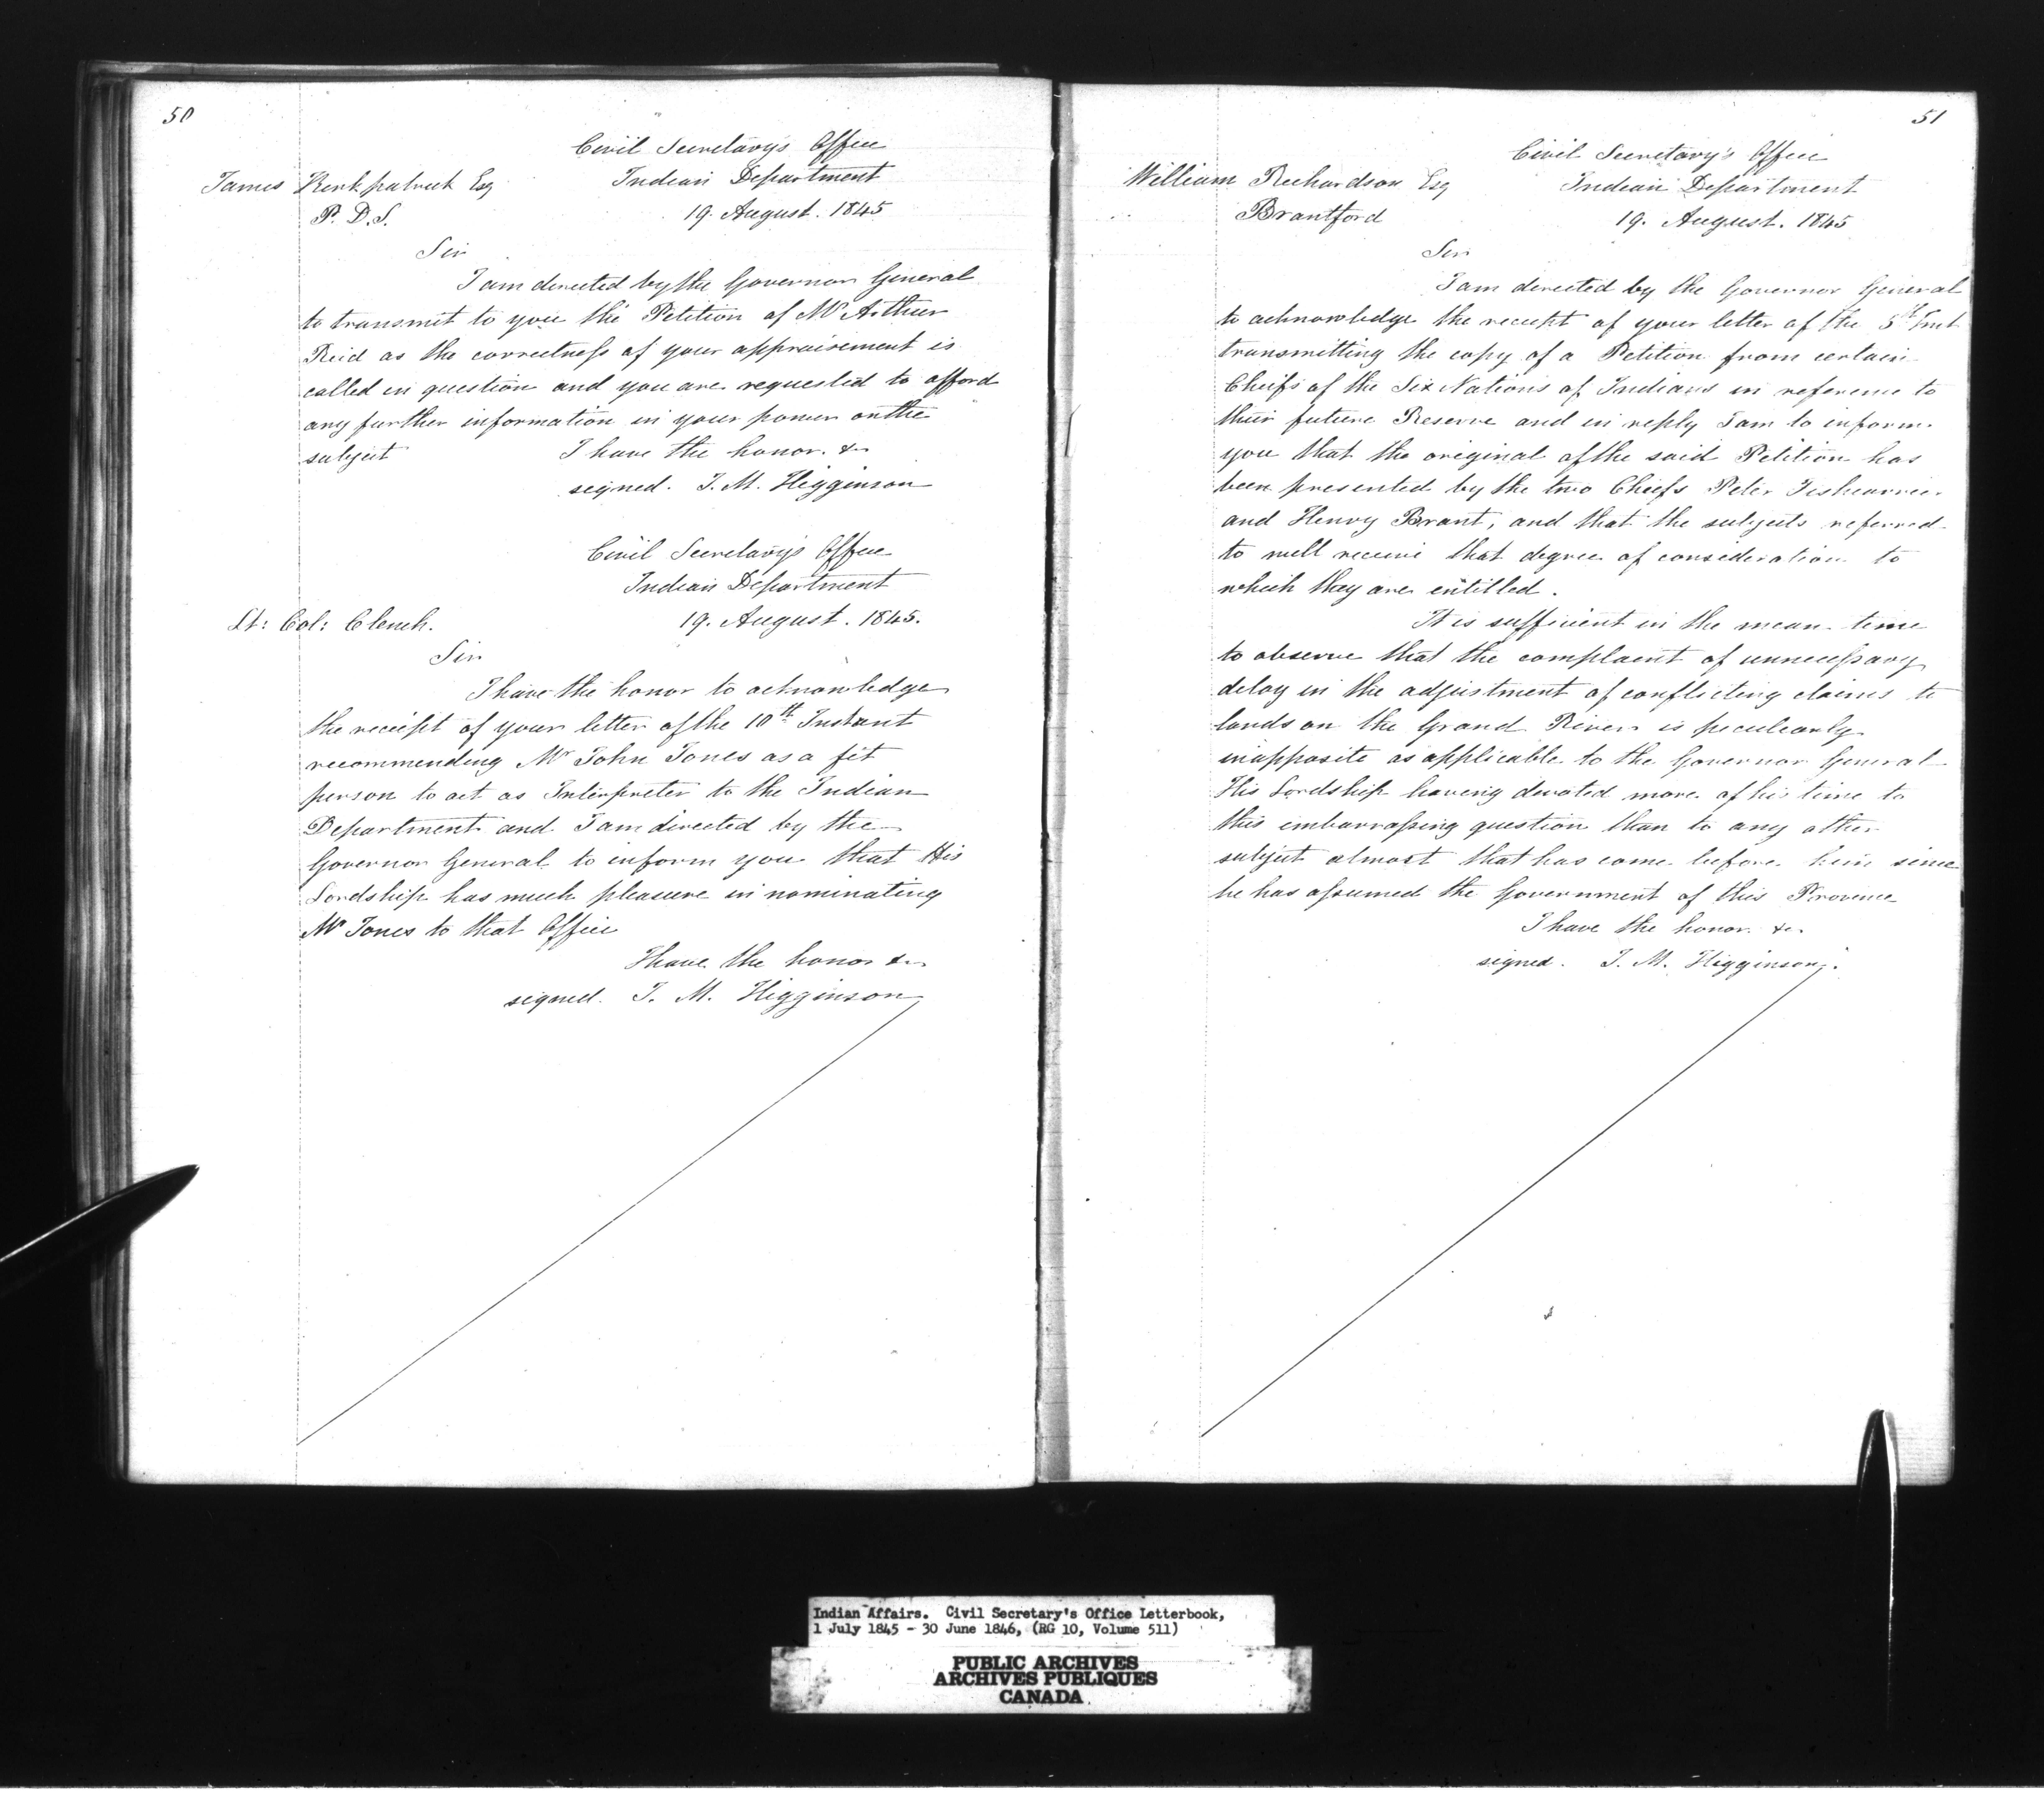 50
Civil Secretary's Office
Indian Department
19. August. 1845
James Kirkpatrick Esq
P. D. S.
Sir
I am directed by the Governor General
to transmit to you the Petition of Mr Arthur
Reid as the correctness of your appraisement is
called in question and you are requested to afford
any further information in your power on the
subject
I have the honor. &c
signed. J. M. Higginson
Civil Secretary's Office
Indian Department
19. August. 1845.
Lt: Col: Clench.
Sir
I have the honor to acknowledge
the receipt of your letter of the 10th Instant
recommending Mr John Jones as a fit
person to act as Interpreter to the Indian
Department and I am directed by the
Governor General to inform you that His
Lordship has much pleasure in nominating
Mr Jones to that Office
I have the honor &c
signed. J. M. Higginson
51
Civil Secretary's Office
Indian Department
19. August. 1845
William Richardson Esq
Brantford
Sir
I am directed by the Governor General
to acknowledge the receipt of your letter of the 5th Inst
transmitting the copy of a Petition from certain
Chiefs of the Six Nations of Indians in reference to
their future Reserve and in reply I am to inform
you that the original of the said Petition has
been presented by the two Chiefs Peter
and Henry Brant, and that the subjects referred
to will receive that degree of consideration to
which they are entitled.
It is sufficient in the mean time
to observe that the complaint of unnecessary
delay in the adjustment of conflicting claims to
lands on the Grand River is peculiarly
inapposite as applicable to the Governor General
His Lordship having devoted more of his time to
this embarrassing question than to any other
subject almost that has come before him since
he has assumed the Government of this Province
I have the honor &c
signed. J. M. Higginson.
Indian Affairs. Civil Secretary's Office Letterbook,
1 July 1845 - 30 June 1846, (RG 10, Volume 511)
PUBLIC ARCHIVES
ARCHIVES PUBLIQUES
CANADA